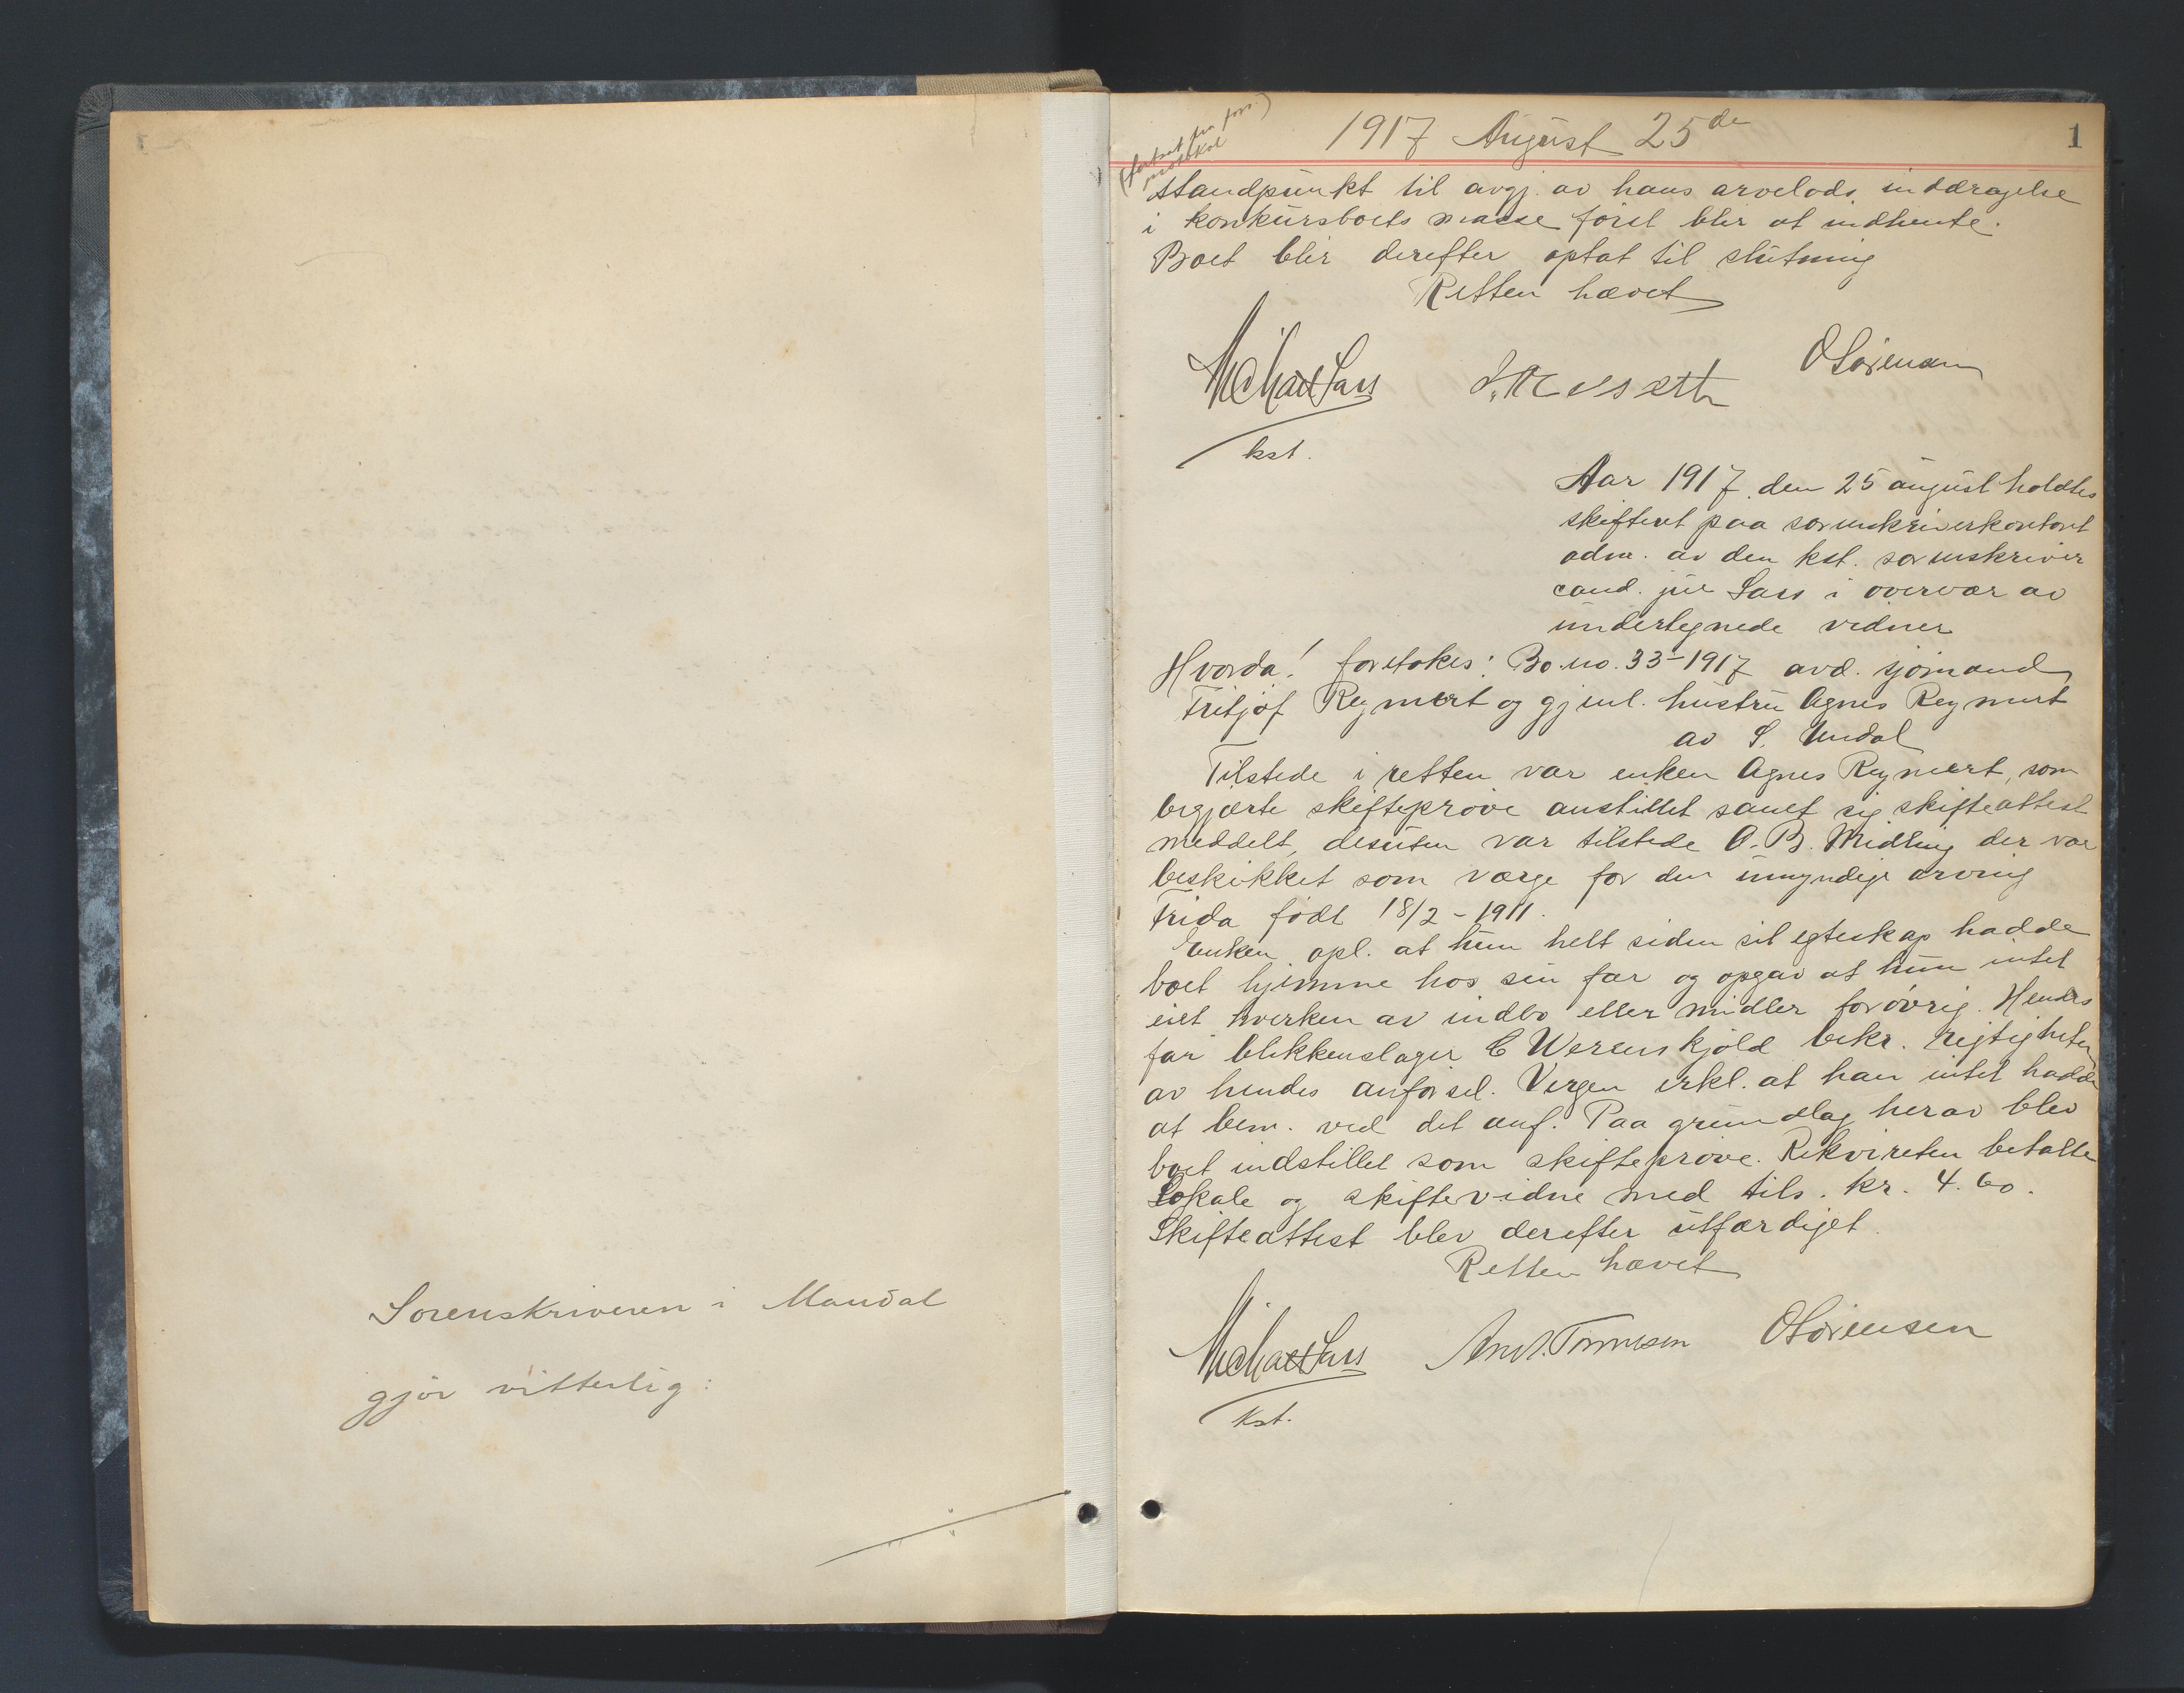 Sorenskriveren i Mandal
gjör vitterlig:
1917 August 25de
1
(fortsat fra forr.
protokol)
standpunkt til avgj. av hans arvelods inddragelse
i konkursboets masse först blir at indhente.
Boet blir derefter optat til slutning
Retten hævet
Michael Lass
O Sörensen
kst.
Aar 1917 den 25 august holdtes
skifteret paa sorenskriverkontoret
adm. av den kst. sorenskriver
cand. jur Lass i overvær av
undertegnede vidner
Hvorda! foretokes: Bo. no. 33-1917 avd. sjömand
Fritjof Reymert og gjenl. hustru Agnes Reymert
av S. Undal
Tilstede i retten var enken Agnes Reymert, som
begjærte skiftepröve anstillet samt sig skifteattest
meddelt, desuten var tilstede O. B. Midling der var
beskikket som værge for den umyndige arving
Frida födt 18/2-1911.
Enken opl. at hun helt siden sit egteskap hadde
boet hjemme hos sin far og opgav at hun intet
eiet hverken av indbo eller midler forövrig. Hendes
far blikkenslager C Werenskjold bekr. rigtigheten
av hendes anförsel. Vergen erkl. at han intet hadde
at bem. ved det anf. Paa grundlag herav blev
boet indstillet som skiftepröve. Rekvirenten betalte
Lokale og skiftevidne med tils. kr. 4.60.
Skifteattest blev derefter utfærdiget.
Retten hævet
Michael Lass
And. Tönnesen
O Sörensen
kst.